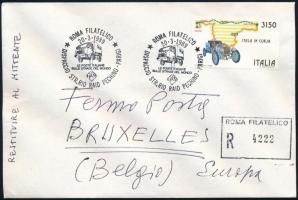 RESTITUIRE AL MITTENTE
ROMA FILATELICO
20-3-1989
DISPACCIO STR.RIO RAID PECHINO-PARIGI
ROMA FILATELICO
20-3-1989
DISPACCIO STR.RIO RAID PECHINO-PARIGI
3150
ITALIA IN CORSA
ITALIA
Fermo Posta
BRUXELLES
(Belgio) Europa
ROMA FILATELICO
R 4222